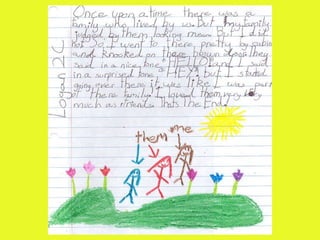 Once upon a time there was a
family who lived by us But my family
judged by them looking mean But I did
not So I went to there pretty big patio
and knocked on there brown door they
said in a nice tone "HELLO" and I said
in a surprised tone "HEY" but I started
going over there it was like I was part
of there family I loved them very very
much as friends thats the End!
them me